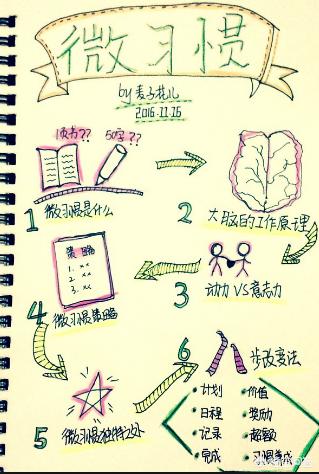 微习惯
by麦子花儿
2016.11.15
1页书?? 50字??
1 微习惯是什么
2 大脑的工作原理
3 动力VS意志力
策略
1. xx
2. xx
3. xx
4 微习惯策略
5 微习惯独特之处
6 步改变法
·计划
·日程
·记录
·完成
·价值
·奖励
·超额
·习惯养成